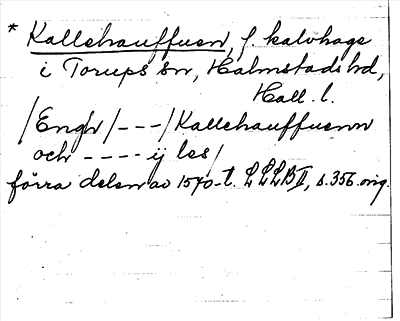 * Kallehauffuen, f. kalvhage
i Torups sn, Halmstads hd,
Hall. l.
/Engh/---/Kallehauffuenn
och ---- ij les/
förra delen av 1540-t. LLLB II, s. 356. orig.